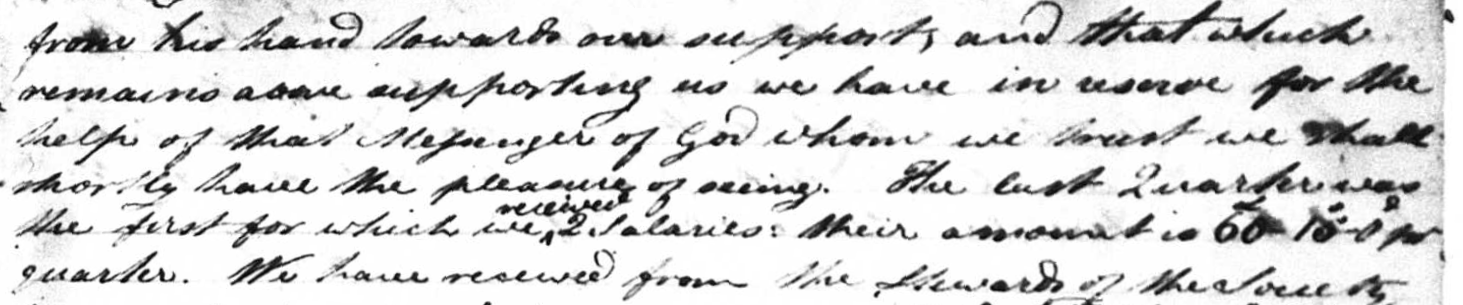 from his hand towards our support, and that which
remains above supporting us we have in reserve for the
help of that Messenger of God whom we trust we shall
shortly have the pleasure of seeing. The last Quarter was
the first for which we received 2 Salaries: their amount is 60 - 18 - 0 pr
quarter. We have received from the Stewards of the Society